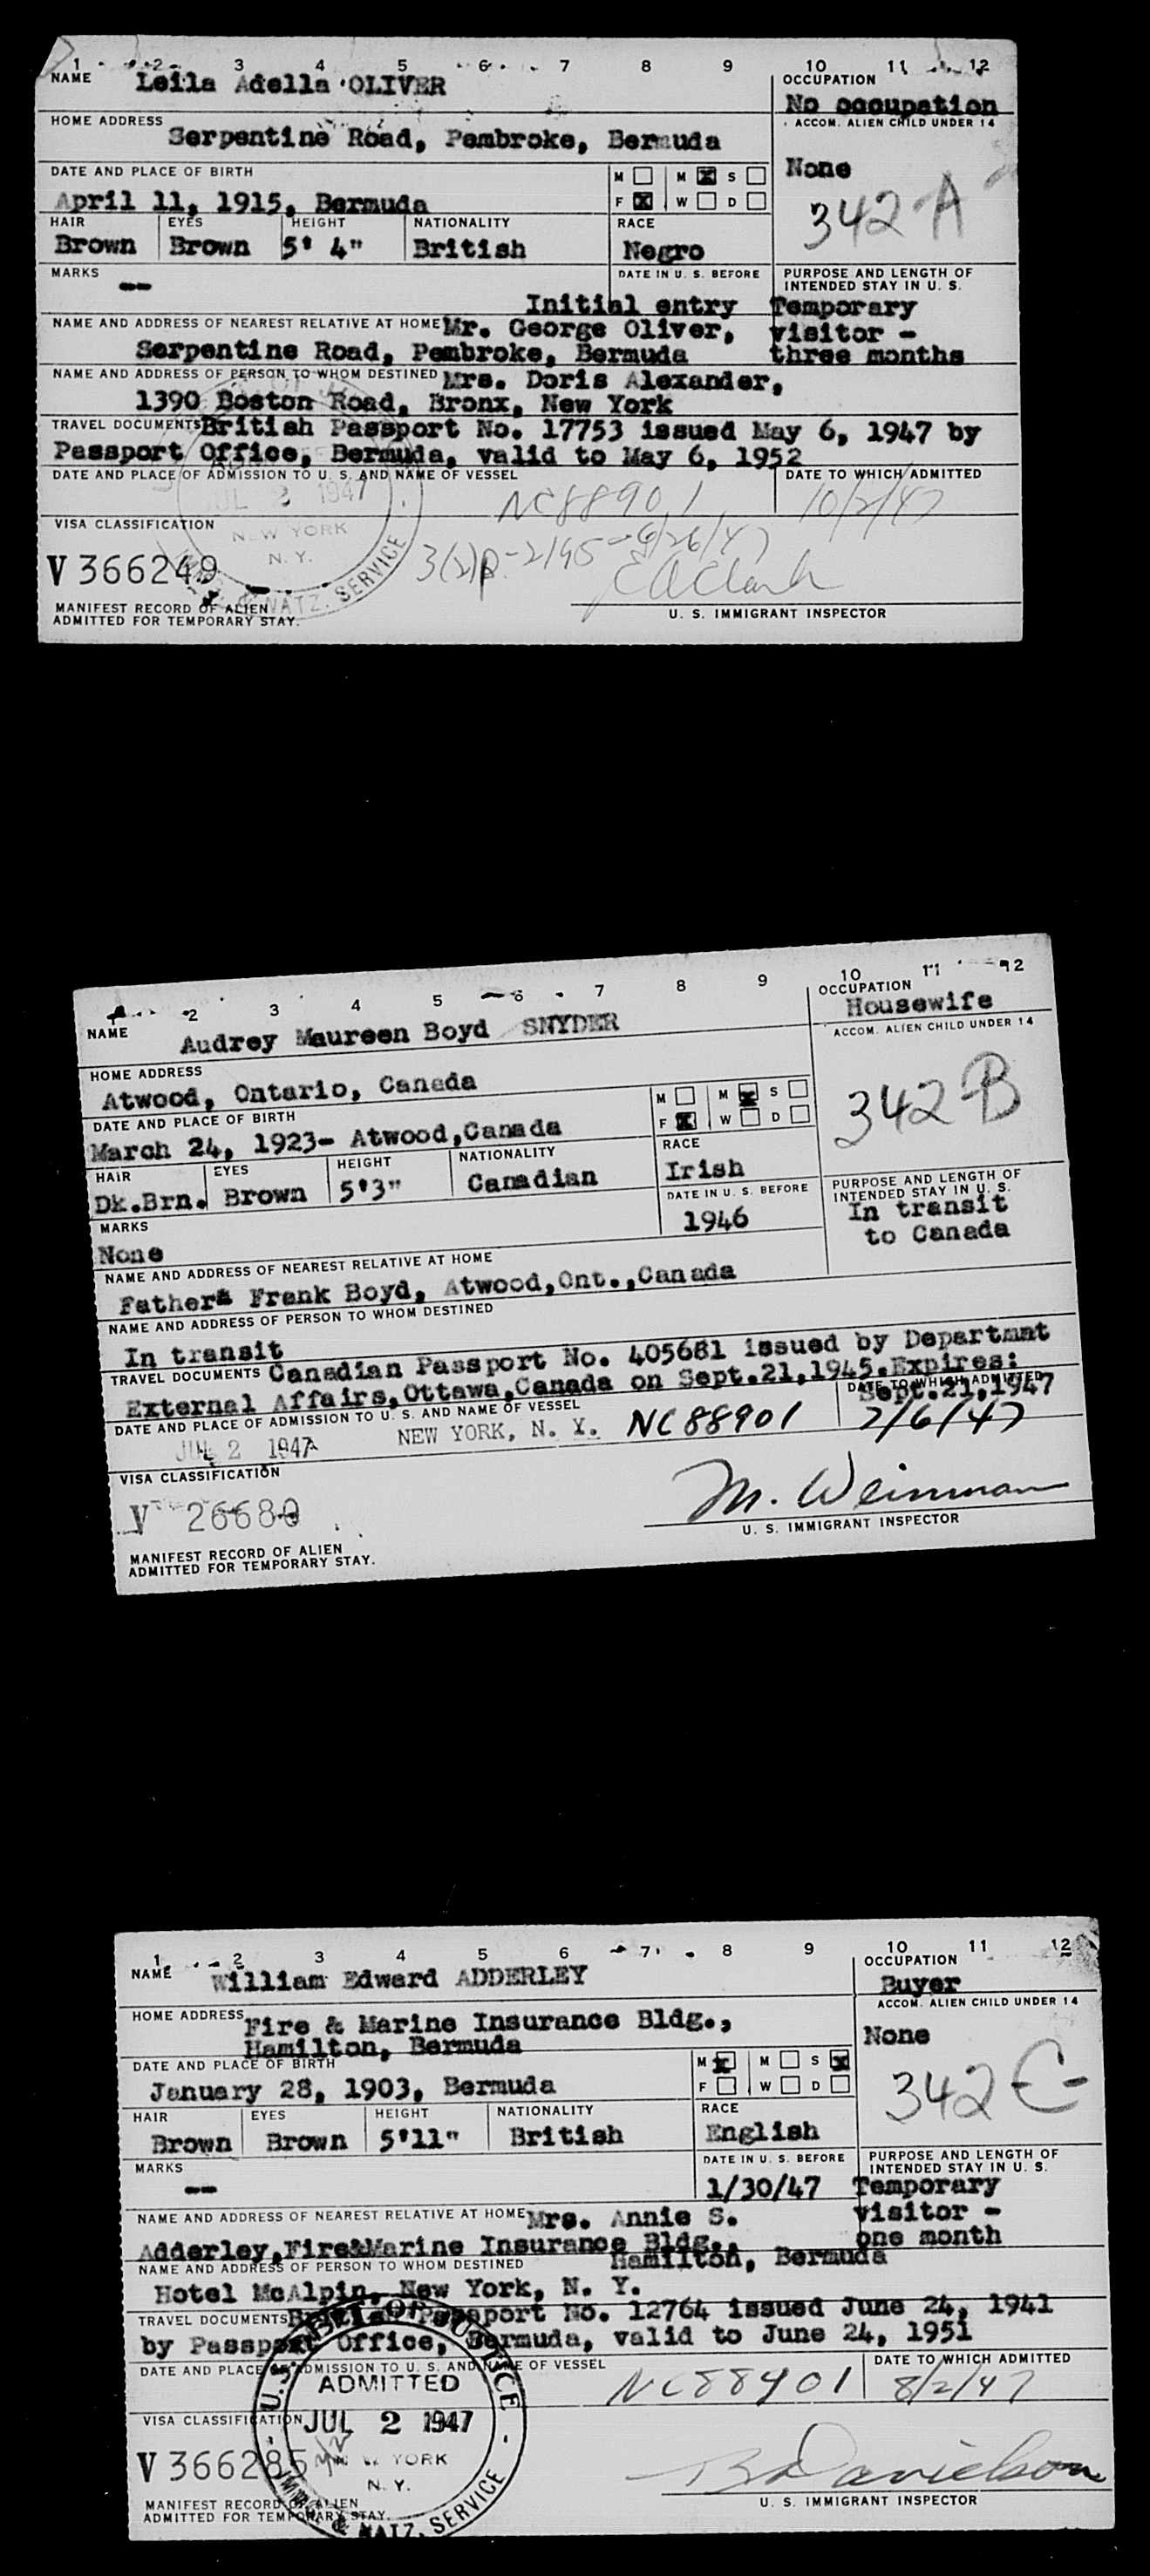 1 2 3 4 5 6 7 8 9 10 11 12
NAME Leila Adella OLIVER
OCCUPATION
No occupation
HOME ADDRESS Serpentine Road, Pembroke, Bermuda
ACCOM. ALIEN CHILD UNDER 14
None
342-A
DATE AND PLACE OF BIRTH
April 11, 1915, Bermuda
M M X S
F X W D
HAIR EYES HEIGHT NATIONALITY RACE
Brown Brown 5' 4" British Negro
MARKS --
DATE IN U. S. BEFORE
Initial entry
PURPOSE AND LENGTH OF
INTENDED STAY IN U. S.
Temporary
visitor -
three months
NAME AND ADDRESS OF NEAREST RELATIVE AT HOME Mr. George Oliver,
Serpentine Road, Pembroke, Bermuda
NAME AND ADDRESS OF PERSON TO WHOM DESTINED Mrs. Doris Alexander,
1390 Boston Road, Bronx, New York
TRAVEL DOCUMENTS British Passport No. 17753 issued May 6, 1947 by
Passport Office, Bermuda, valid to May 6, 1952
DATE AND PLACE OF ADMISSION TO U. S. AND NAME OF VESSEL
DATE TO WHICH ADMITTED
JUL 2 1947
NC88901
10/2/47
NEW YORK
N. Y.
NATZ. SERVICE
VISA CLASSIFICATION
V 366249
U. S. IMMIGRANT INSPECTOR
MANIFEST RECORD OF ALIEN
ADMITTED FOR TEMPORARY STAY.
2 3 4 5 6 7 8 9 10 11 12
NAME Audrey Maureen Boyd SNYDER
OCCUPATION
Housewife
HOME ADDRESS
Atwood, Ontario, Canada
ACCOM. ALIEN CHILD UNDER 14
342-B
DATE AND PLACE OF BIRTH
March 24, 1923- Atwood,Canada
M M X S
F X W D
HAIR EYES HEIGHT NATIONALITY RACE
Dk.Brn. Brown 5'3" Canadian Irish
MARKS
None
DATE IN U. S. BEFORE
1946
PURPOSE AND LENGTH OF
INTENDED STAY IN U. S.
In transit
to Canada
NAME AND ADDRESS OF NEAREST RELATIVE AT HOME
Father: Frank Boyd, Atwood,Ont.,Canada
NAME AND ADDRESS OF PERSON TO WHOM DESTINED
In transit
TRAVEL DOCUMENTS Canadian Passport No. 405681 issued by Departmnt
External Affairs,Ottawa,Canada on Sept.21,1945.Expires:
Sept.21,1947
DATE AND PLACE OF ADMISSION TO U. S. AND NAME OF VESSEL
DATE TO WHICH ADMITTED
JUL 2 1947 NEW YORK, N. Y. NC88901 7/6/47
VISA CLASSIFICATION
V 26680
M. Weinman
U. S. IMMIGRANT INSPECTOR
MANIFEST RECORD OF ALIEN
ADMITTED FOR TEMPORARY STAY.
1 2 3 4 5 6 7 8 9 10 11 12
NAME William Edward ADDERLEY
OCCUPATION
Buyer
HOME ADDRESS Fire & Marine Insurance Bldg.,
Hamilton, Bermuda
ACCOM. ALIEN CHILD UNDER 14
None
342-C-
DATE AND PLACE OF BIRTH
January 28, 1903, Bermuda
M X M S X
F W D
HAIR EYES HEIGHT NATIONALITY RACE
Brown Brown 5'11" British English
MARKS --
DATE IN U. S. BEFORE
1/30/47
PURPOSE AND LENGTH OF
INTENDED STAY IN U. S.
Temporary
visitor -
one month
NAME AND ADDRESS OF NEAREST RELATIVE AT HOME Mrs. Annie S.
Adderley,Fire&Marine Insurance Bldg.,
Hamilton, Bermuda
NAME AND ADDRESS OF PERSON TO WHOM DESTINED
Hotel McAlpin, New York, N. Y.
TRAVEL DOCUMENTS British Passport No. 12764 issued June 24, 1941
by Passport Office, Bermuda, valid to June 24, 1951
DATE AND PLACE OF ADMISSION TO U. S. AND NAME OF VESSEL
DATE TO WHICH ADMITTED
ADMITTED
JUL 2 1947
NEW YORK
N. Y.
NATZ. SERVICE
NC88901
8/2/47
VISA CLASSIFICATION
V 366285
B Davidson
U. S. IMMIGRANT INSPECTOR
MANIFEST RECORD OF ALIEN
ADMITTED FOR TEMPORARY STAY.